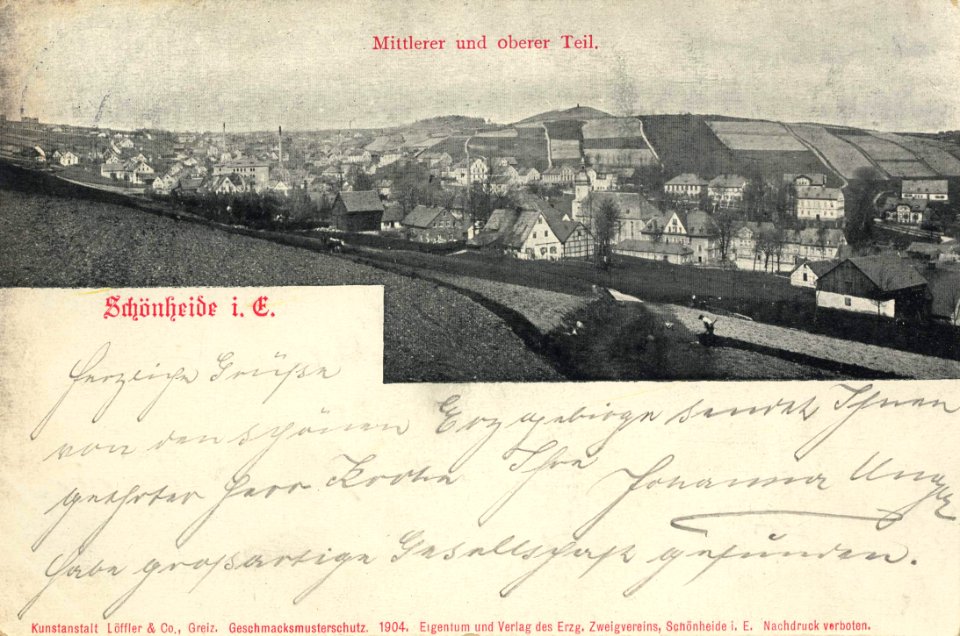 Mittlerer und oberer Teil.
Schönheide i. E.
Herzliche Grüße
von den schönen Erzgebirge sendet Ihnen
geehrter Herr Ihre Johanna Unger
habe großartige Gesellschaft gefunden.
Kunstanstalt Löffler & Co., Greiz. Geschmacksmusterschutz. 1904. Eigentum und Verlag des Erzg. Zweigvereins, Schönheide i. E. Nachdruck verboten.